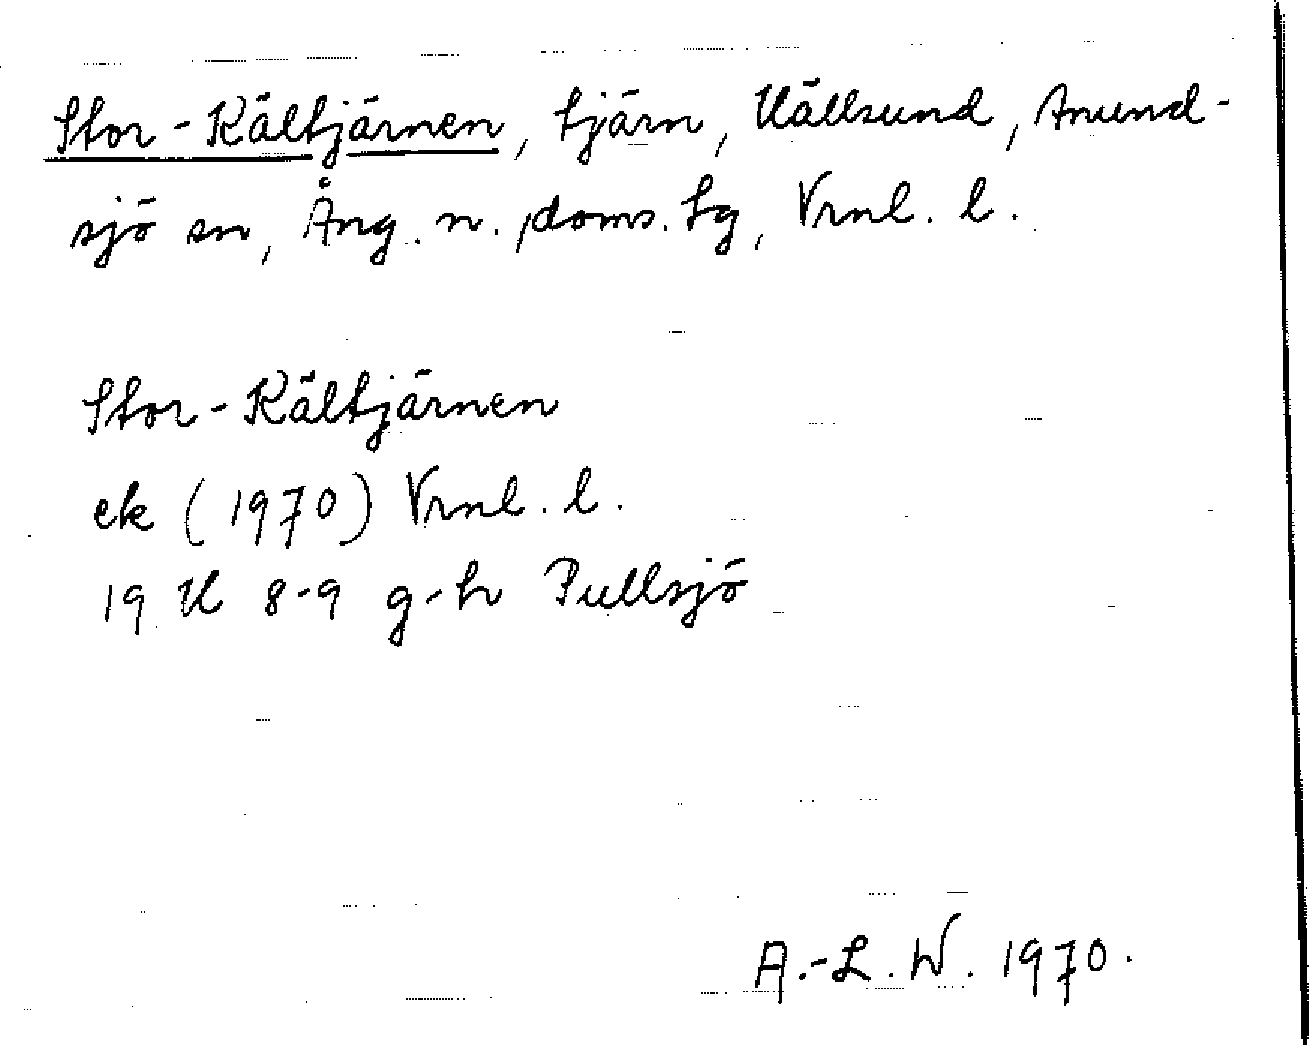 Stor-Kältjärnen, tjärn, Hällsund, Anund-
sjö sn, Ång. n. doms. tg, Vrnl. l.
Stor-Kältjärnen
ek (1970) Vrnl. l.
19 H 8-9 g-h Pullsjö
A.-L. W. 1970.